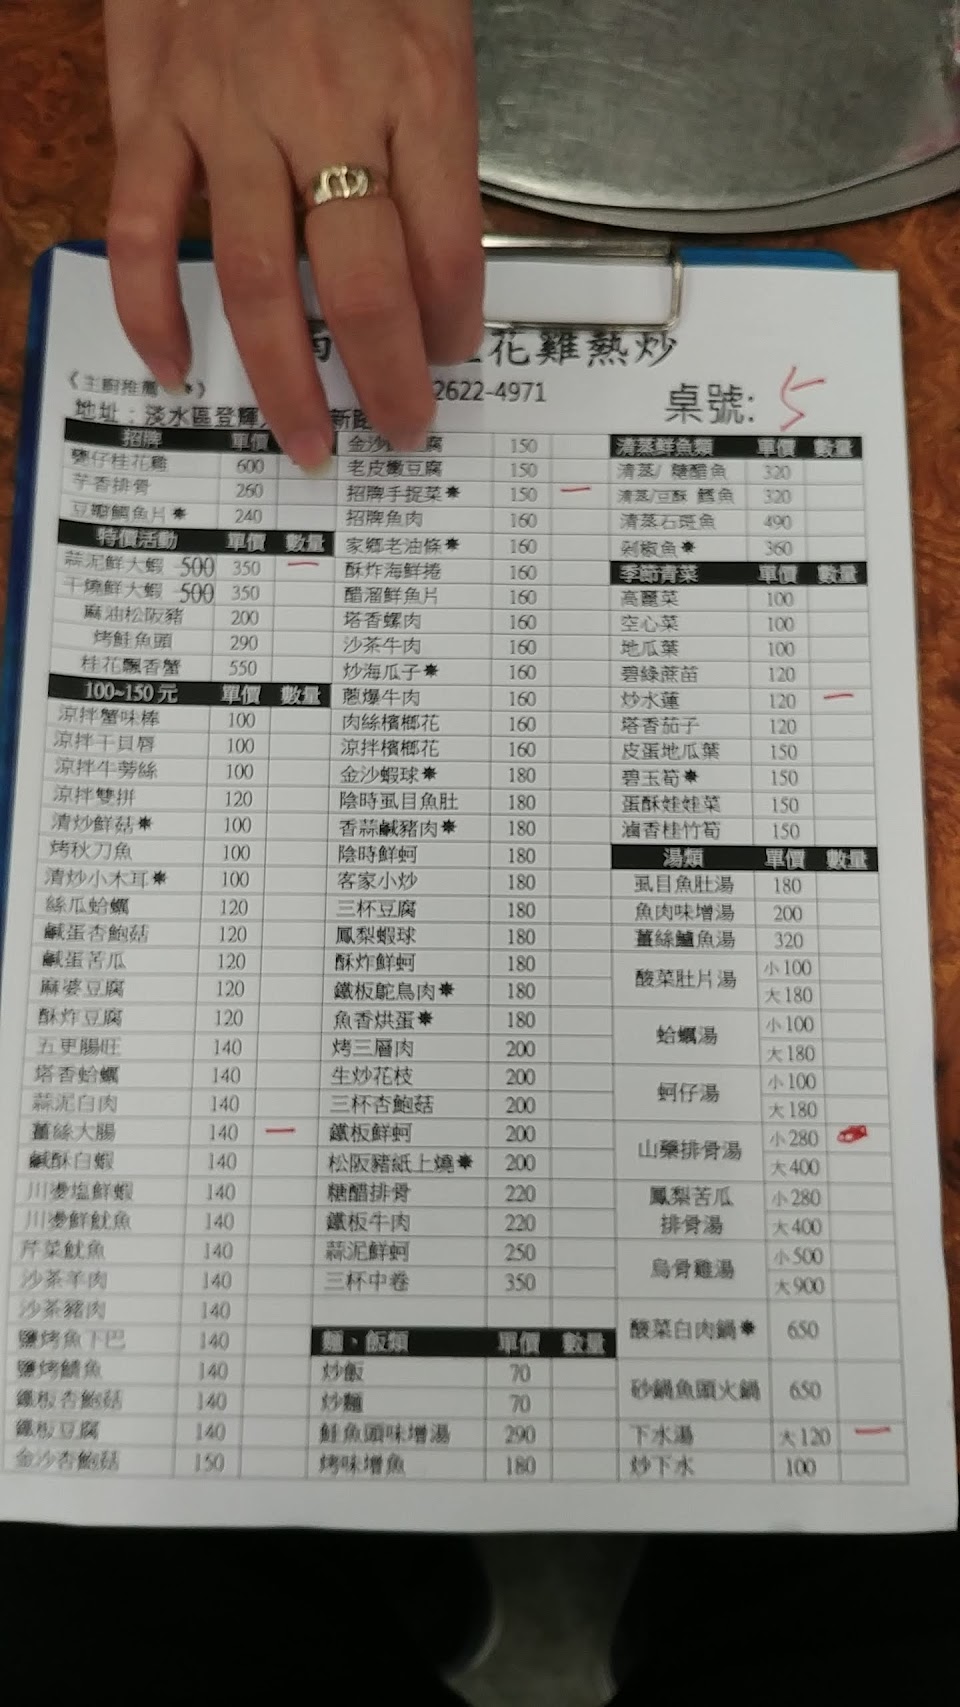 花雞熱炒
《主廚推薦
2622-4971
桌號: 5
地址：淡水區登輝
招牌 單價
甕仔桂花雞 600
芋香排骨 260
豆瓣鯛魚片✷ 240
特價活動 單價 數量
蒜泥鮮大蝦 500 350 一
干燒鮮大蝦 500 350
麻油松阪豬 200
烤鮭魚頭 290
桂花飄香蟹 550
100~150 元 單價 數量
涼拌蟹味棒 100
涼拌干貝唇 100
涼拌牛蒡絲 100
涼拌雙拼 120
清炒鮮菇✷ 100
烤秋刀魚 100
清炒小木耳✷ 100
絲瓜蛤蠣 120
鹹蛋杏鮑菇 120
鹹蛋苦瓜 120
麻婆豆腐 120
酥炸豆腐 120
五更腸旺 140
塔香蛤蠣 140
蒜泥白肉 140
薑絲大腸 140 一
鹹酥白蝦 140
川燙塩鮮蝦 140
川燙鮮魷魚 140
芹菜魷魚 140
沙茶羊肉 140
沙茶豬肉 140
鹽烤魚下巴 140
鹽烤鯖魚 140
鐵板杏鮑菇 140
鐵板豆腐 140
金沙杏鮑菇 150
金沙 腐 150
老皮嫩豆腐 150
招牌手捉菜✷ 150 一
招牌魚肉 160
家鄉老油條✷ 160
酥炸海鮮捲 160
醋溜鮮魚片 160
塔香螺肉 160
沙茶牛肉 160
炒海瓜子✷ 160
蔥爆牛肉 160
肉絲檳榔花 160
涼拌檳榔花 160
金沙蝦球✷ 180
陰時虱目魚肚 180
香蒜鹹豬肉✷ 180
陰時鮮蚵 180
客家小炒 180
三杯豆腐 180
鳳梨蝦球 180
酥炸鮮蚵 180
鐵板鴕鳥肉✷ 180
魚香烘蛋✷ 180
烤三層肉 200
生炒花枝 200
三杯杏鮑菇 200
鐵板鮮蚵 200
松阪豬紙上燒✷ 200
糖醋排骨 220
鐵板牛肉 220
蒜泥鮮蚵 250
三杯中卷 350
麵、飯類 單價 數量
炒飯 70
炒麵 70
鮭魚頭味增湯 290
烤味增魚 180
清蒸鮮魚類 單價 數量
清蒸/ 糖醋魚 320
清蒸/豆酥 鱈魚 320
清蒸石斑魚 490
剁椒魚✷ 360
季節青菜 單價 數量
高麗菜 100
空心菜 100
地瓜葉 100
碧綠蔗苗 120
炒水蓮 120 一
塔香茄子 120
皮蛋地瓜葉 150
碧玉筍✷ 150
蛋酥娃娃菜 150
滷香桂竹筍 150
湯類 單價 數量
虱目魚肚湯 180
魚肉味增湯 200
薑絲鱸魚湯 320
酸菜肚片湯 小100
大180
蛤蠣湯 小100
大180
蚵仔湯 小100
大180
山藥排骨湯 小280
大400
鳳梨苦瓜 小280
排骨湯 大400
烏骨雞湯 小500
大900
酸菜白肉鍋✷ 650
砂鍋魚頭火鍋 650
下水湯 大120 一
炒下水 100